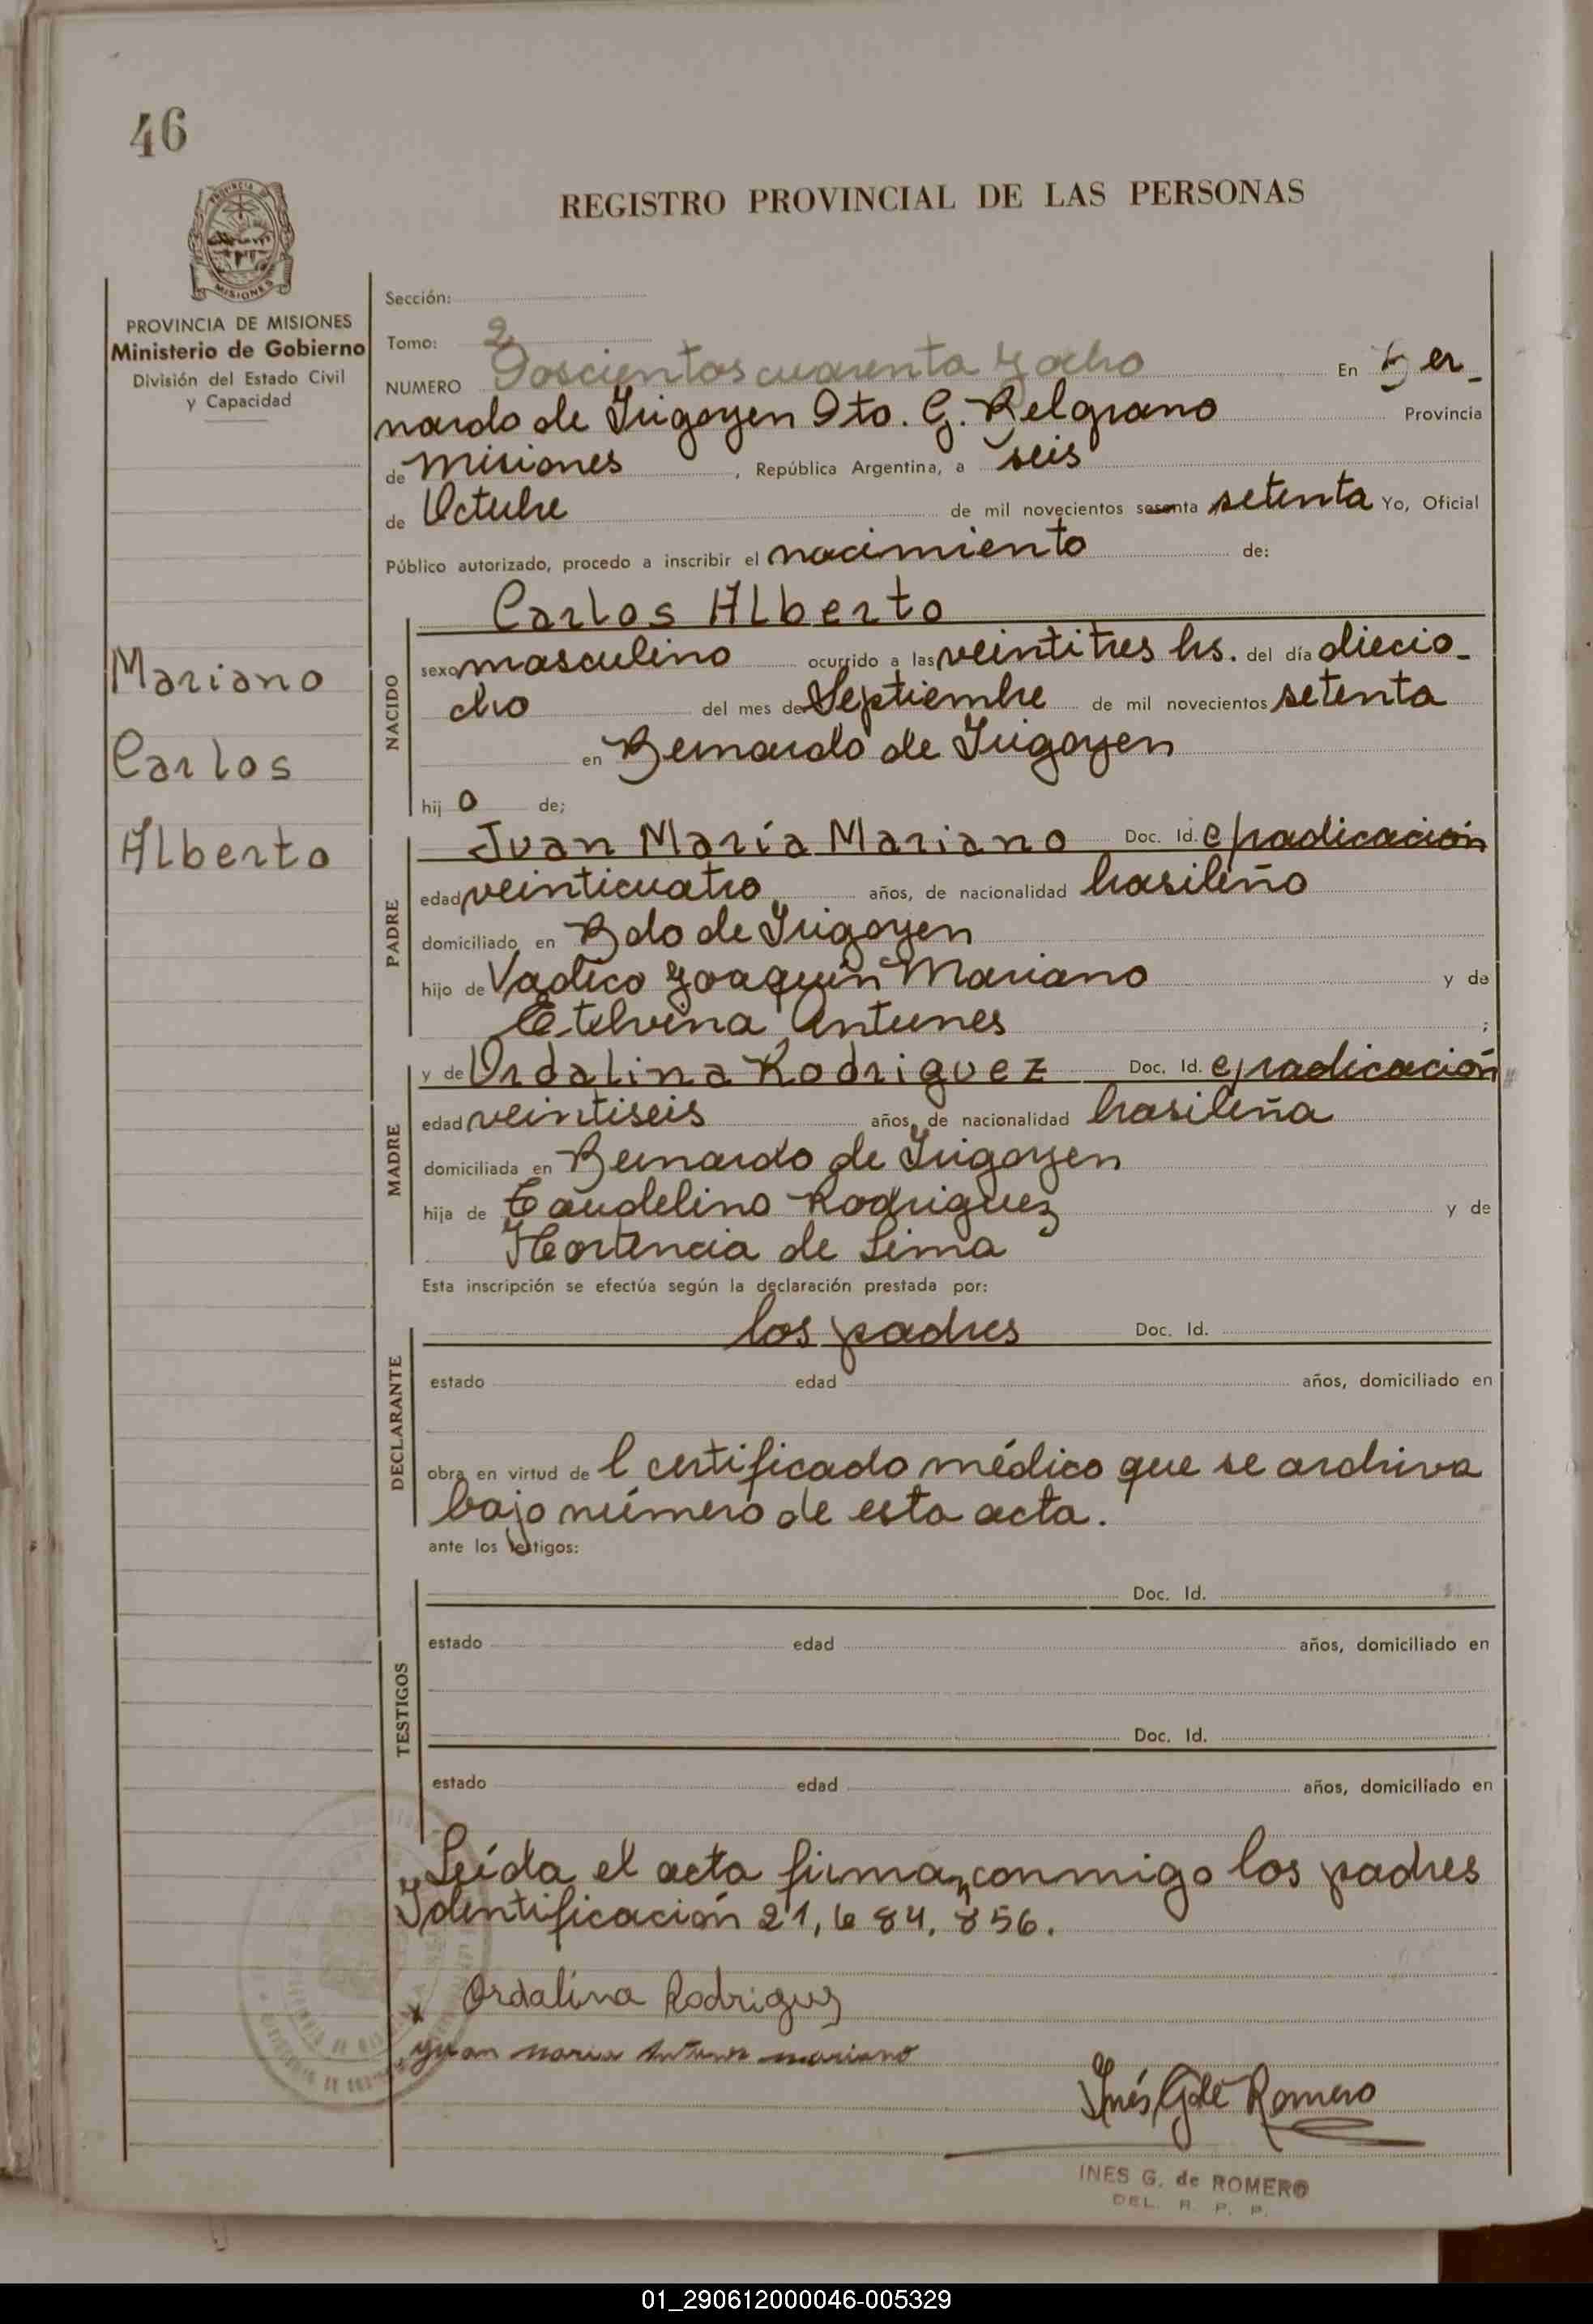 46
REGISTRO PROVINCIAL DE LAS PERSONAS
MISIONES
PROVINCIA DE MISIONES
Ministerio de Gobierno
División del Estado Civil
y Capacidad
Mariano
Carlos
Alberto
Sección:
Tomo: 2
NUMERO Doscientos cuarenta y ocho En Ber-
nardo de Irigoyen Dto. G. Belgrano Provincia
de Misiones, República Argentina, a seis
de Octubre de mil novecientos sesenta setenta Yo, Oficial
Público autorizado, procedo a inscribir el nacimiento de:
NACIDO
Carlos Alberto
sexo masculino ocurrido a las veintitres hs. del día diecio-
cho del mes de Septiembre de mil novecientos setenta
en Bernardo de Irigoyen
hij o de;
PADRE
Juan María Mariano Doc. Id. e/radicación
edad veinticuatro años, de nacionalidad brasileño
domiciliado en Bdo de Irigoyen
hijo de Joaquín Mariano y de
Etelvina Antunes ;
MADRE
y de Ordalina Rodriguez Doc. Id. e/radicación
edad veintiseis años, de nacionalidad brasileña
domiciliada en Bernardo de Irigoyen
hija de Rodriguez y de
Hortencia de Lima
Esta inscripción se efectúa según la declaración prestada por:
DECLARANTE
los padres Doc. Id.
estado edad años, domiciliado en
obra en virtud de l certificado médico que se archiva
bajo número de esta acta.
ante los testigos:
TESTIGOS
Doc. Id.
estado edad años, domiciliado en
Doc. Id.
estado edad años, domiciliado en
Leída el acta firman conmigo los padres
Identificación 21,684.856.
x Ordalina Rodriguez
Juan maria Antunes mariano
Inés G de Romero
INES G. de ROMERO
DEL. R. P. P.
01_290612000046-005329